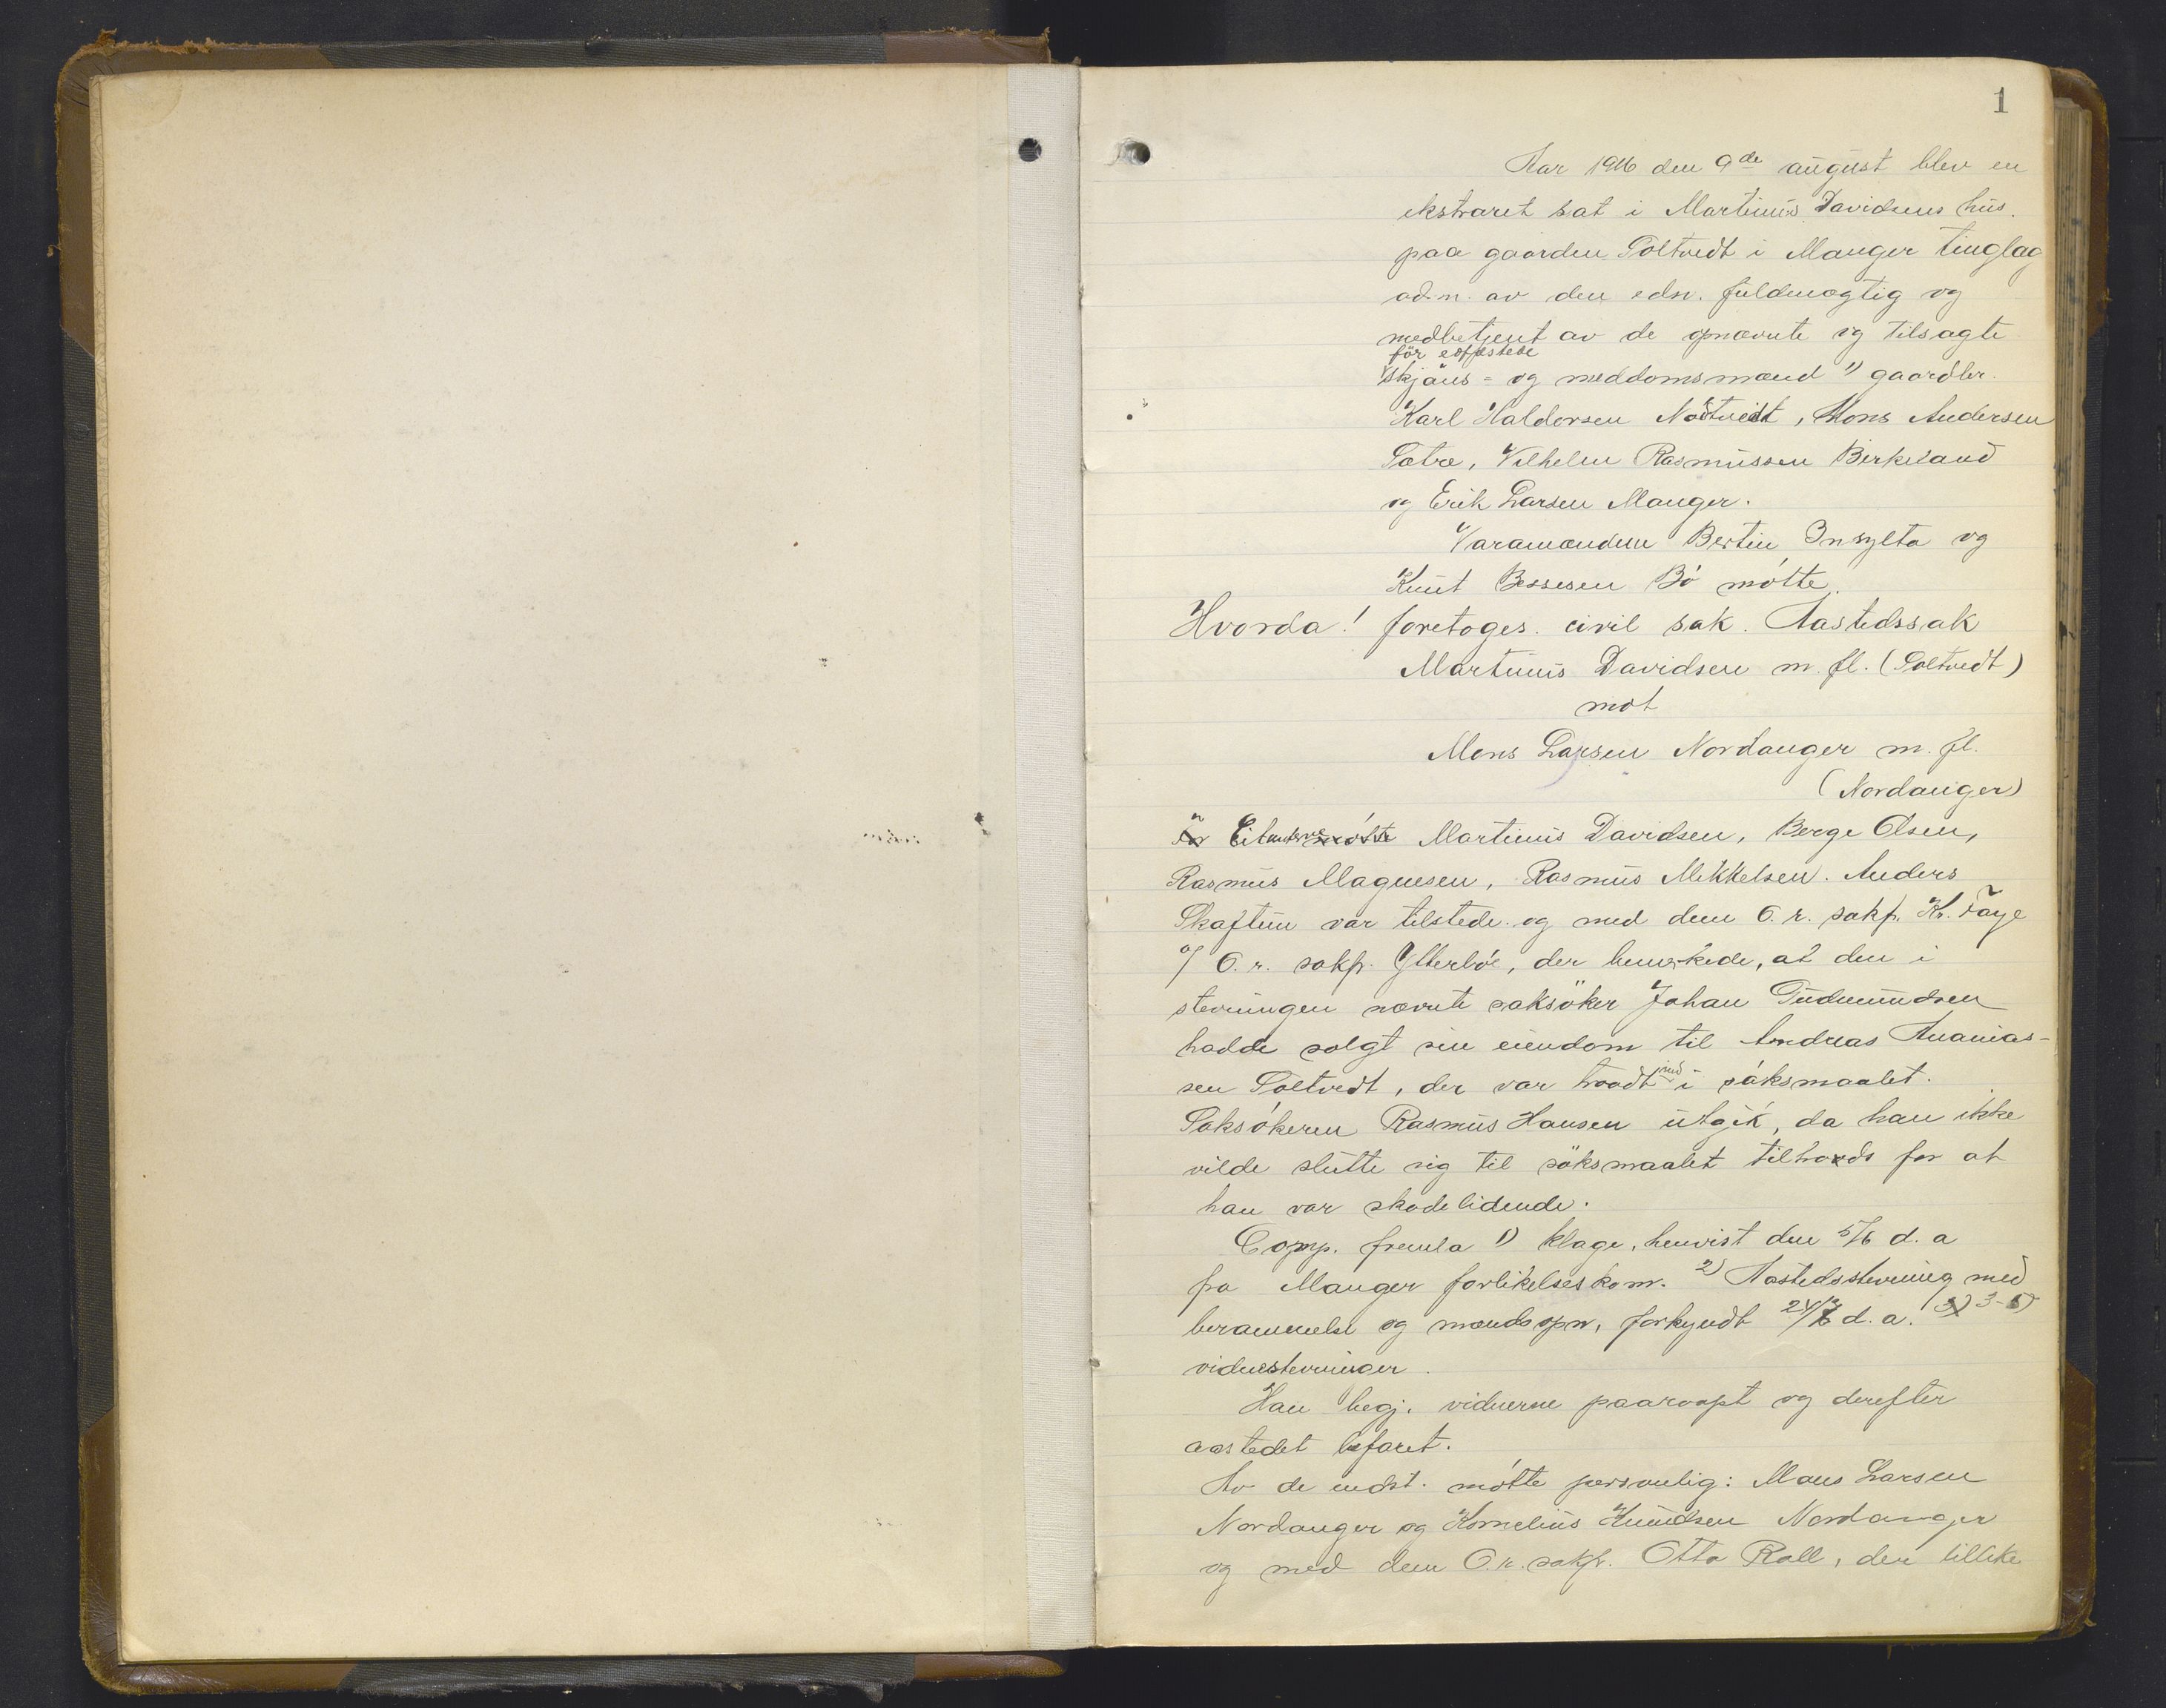 1
Aar 1916 den 9de august blev en
ekstraret sat i Martinus Davidsens hus
paa gaarden Soltvedt i Manger tinglag
adm. av den edsv. fuldmægtig og
medbetjent av de opnævnte og tilsagte
før edfæstede
skjøns- og meddomsmænd 1) gaardbr.
Karl Haldorsen Nødtvedt, Mons Andersen
Sætre, Vilhelm Rasmussen Birkeland
og Erik Larsen Manger.
Varamændene Bertin Insylta og
Knut Bessesen Bö mötte.
Hvorda! foretoges civil sak. Aastedssak
Martinus Davidsen m. fl. (Soltvedt)
mot
Mons Larsen Nordanger m. fl.
(Nordanger)
Martinus Davidsen, Berge Olsen,
Rasmus Magnesen, Rasmus Mikkelsen. Anders
Skaftun var tilstede og med dem O. r. sakf. Kr. Faye
o/ O. r. sakf. Ytterböe, der bemerkede, at den i
stevningen nævnte saksöker Johan Gudmundsen
hadde solgt sin eiendom til Andreas Ananias-
sen Soltvedt, der var traadt ind i søksmaalet.
Saksökeren Rasmus Hansen utgik, da han ikke
vilde slutte sig til søksmaalet tiltrods for at
han var skadelidende.
Comp. fremla 1) klage, henvist den 5/6 d. a
fra Manger forlikelseskom. 2) Aastedsstevning med
berammelse og mændsopn, forkyndt 24/7 d. a. 3-5)
vidnestevninger.
Han begj. vidnerne paaropt og derefter
aastedet befaret.
Av de indst. mötte personlig: Mons Larsen
Nordanger og Kornelius Knudsen Nordanger
og med dem O. r. sakf. Otto Roll, der tillike